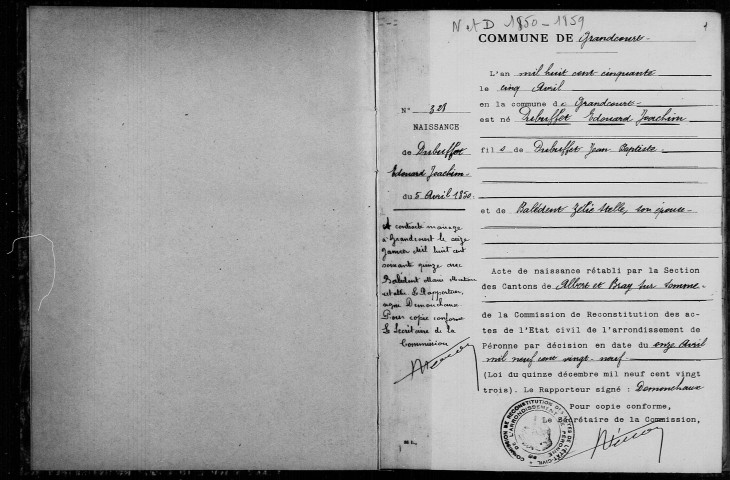 N et D 1850-1859
1
COMMUNE DE Grandcourt
L'an mil huit cent cinquante
le cinq Avril
en la commune de Grandcourt
est né Dubuffet Edouard Joachim
fils de Dubuffet Jean Baptiste
et de Balédent Zélie Stelle, son épouse
Acte de naissance rétabli par la Section
des Cantons de Albert et Bray sur Somme
de la Commission de Reconstitution des ac-
tes de l'Etat civil de l'arrondissement de
Péronne par décision en date du onze Avril
mil neuf cent vingt-neuf
(Loi du quinze décembre mil neuf cent vingt
trois). Le Rapporteur signé : Demonchaux
Pour copie conforme,
Le Secrétaire de la Commission,
COMMISSION DE RECONSTITUTION DES ACTES DE L'ETAT-CIVIL
DE L'ARRONDISSEMENT DE PÉRONNE
N° 321
NAISSANCE
de Dubuffet
Edouard Joachim
du 5 Avril 1850
A contracté mariage
à Grandcourt le seize
Janvier Mil huit cent
soixante quinze avec
Balédent Marie
Le Rapporteur,
signé Demonchaux
Pour copie conforme
Le Secrétaire de la
Commission